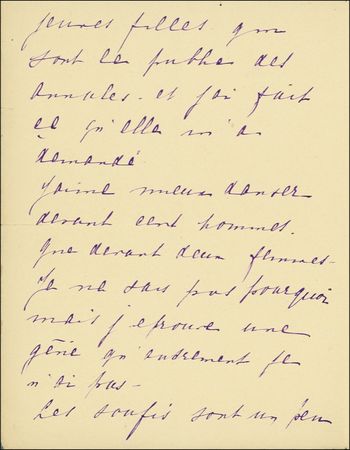 jeunes filles qui
sont le public des
Annales - et j'ai fait
ce qu'elle m'a
demandé
J'aime mieux danser
devant cent hommes.
que devant deux femmes -
Je ne sais pas pourquoi
mais j'eprouve une
gêne qu'autrement je
n'ai pas -
Les soufis sont un peu